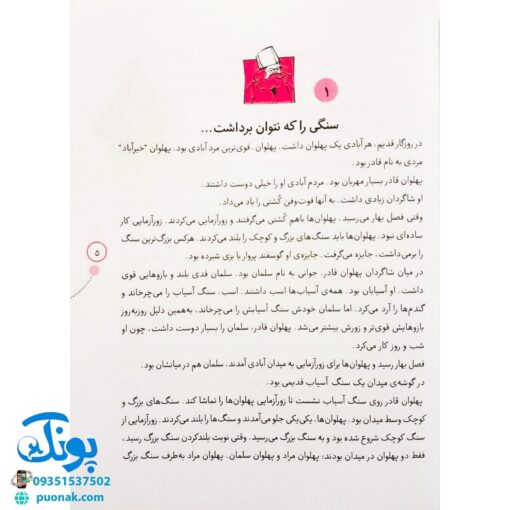 ۱
سنگی را که نتوان برداشت...
در روزگار قدیم، هر آبادی یک پهلوان داشت. پهلوان، قوی‌ترین مرد آبادی بود. پهلوان "خیرآباد"
مردی به نام قادر بود.
پهلوان قادر بسیار مهربان بود. مردم آبادی او را خیلی دوست داشتند.
او شاگردان زیادی داشت. به آنها فوت‌وفن کُشتی را یاد می‌داد.
وقتی فصل بهار می‌رسید، پهلوان‌ها باهم کُشتی می‌گرفتند و زورآزمایی می‌کردند. زورآزمایی کار
ساده‌ای نبود. پهلوان‌ها باید سنگ‌های بزرگ و کوچک را بلند می‌کردند. هرکس بزرگ‌ترین سنگ
را برمی‌داشت، جایزه می‌گرفت. جایزه‌ی او گوسفند پروار یا بزی شیرده بود.
در میان شاگردان پهلوان قادر، جوانی به نام سلمان بود. سلمان قدی بلند و بازوهایی قوی
داشت. او آسیابان بود. همه‌ی آسیاب‌ها اسب داشتند. اسب، سنگ آسیاب را می‌چرخاند و
گندم‌ها را آرد می‌کرد. اما سلمان خودش سنگ آسیابش را می‌چرخاند. به‌همین دلیل روزبه‌روز
بازوهایش قوی‌تر و زورش بیشتر می‌شد. پهلوان قادر، سلمان را بسیار دوست داشت، چون او
شب و روز کار می‌کرد.
فصل بهار رسید و پهلوان‌ها برای زورآزمایی به میدان آبادی آمدند. سلمان هم در میانشان بود.
در گوشه‌ی میدان یک سنگ آسیاب قدیمی بود.
پهلوان قادر روی سنگ آسیاب نشست تا زورآزمایی پهلوان‌ها را تماشا کند. سنگ‌های بزرگ و
کوچک وسط میدان بود. پهلوان‌ها، یکی‌یکی جلو می‌آمدند و سنگ‌ها را بلند می‌کردند. زورآزمایی از
سنگ کوچک شروع شده بود و به سنگ بزرگ می‌رسید. وقتی نوبت بلندکردن سنگ بزرگ رسید،
فقط دو پهلوان در میدان بودند؛ پهلوان مراد و پهلوان سلمان. پهلوان مراد به‌طرف سنگ بزرگ
۵
پونک
09351537502
puonak.com